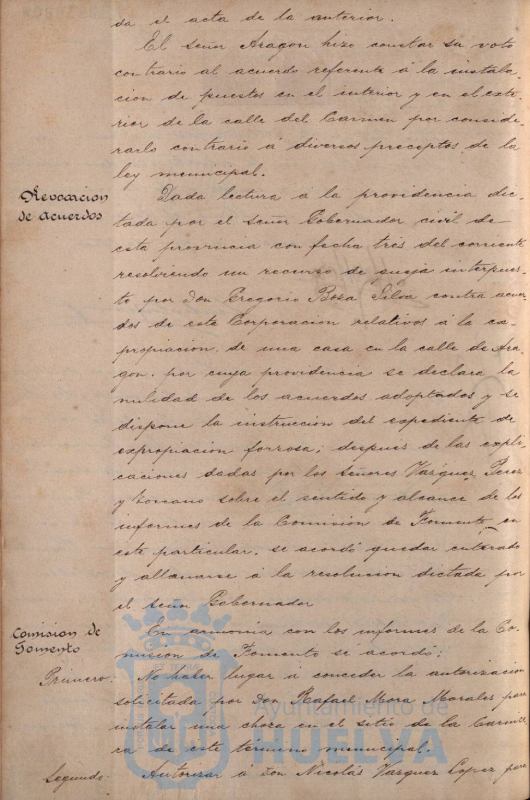 da el acta de la anterior.
El señor Aragon hizo constar su voto
contrario al acuerdo referente á la instala-
cion de puestos en el interior y en el exte-
rior de la calle del Carmen por conside-
rarlo contrario á diversos preceptos de la
ley municipal.
Revocacion
de acuerdos
Dada lectura á la providencia dic-
tada por el señor Gobernador civil de
esta provincia con fecha tres del corriente
resolviendo un recurso de queja interpues-
to por don Gregorio Bosa Silva contra acuer-
dos de esta Corporacion relativos á la ex-
propiacion de una casa en la calle de Ara-
gon, por cuya providencia se declara la
nulidad de los acuerdos adoptados y se
dispone la instruccion del expediente de
expropiacion forzosa; despues de las expli-
caciones dadas por los señores Vazquez Perez
y sobre el sentido y alcance de los
informes de la Comision de Fomento en
este particular, se acordó quedar enterado
y allanarse á la resolucion dictada por
el señor Gobernador
Comision de
Fomento
En armonia con los informes de la Co-
mision de Fomento se acordó;
Primero.
No haber lugar á conceder la autorizacion
solicitada por don Rafael Mora Morales para
instalar una choza en el sitio de la
de este término municipal.
Segundo.
Autorizar á don Nicolás Vazquez Lopez para
Ayuntamiento de
HUELVA